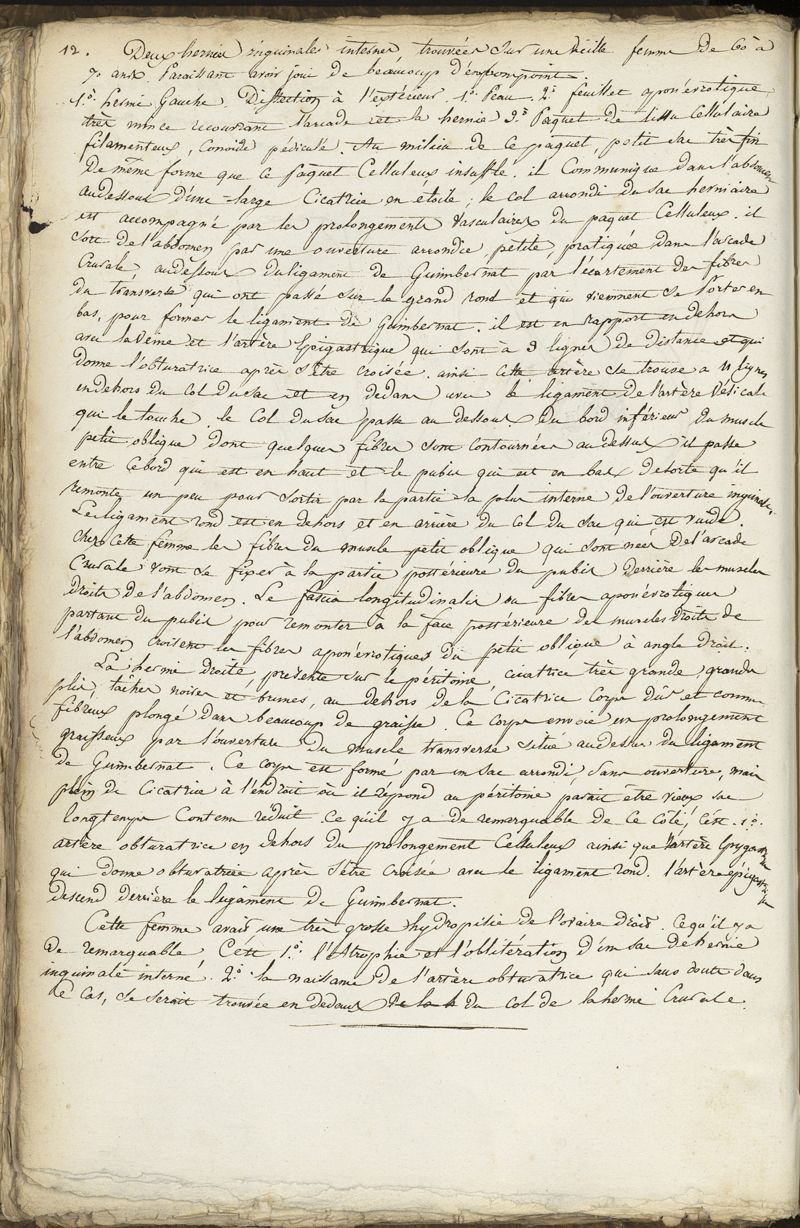 12. Deux hernies inguinales internes trouvées sur une vieille femme de 60 à
70 ans. Paraissant avoir joui de beaucoup d'embonpoint.
1.º hernie Gauche. Dissection à l'extérieur. 1.º Peau. 2.º feuillet aponévrotique
très mince recouvrant l'arcade et la hernie 3.º Paquet de tissu Cellulaire
filamenteux, Conoide pédiculé. Au milieu de ce paquet, petit sac très fin
De même forme que ce paquet Celluleux insufflé. il Communique dans l'abdomen
audessous d'une large Cicatrice en étoile; le col arrondi du sac herniaire
est accompagné par les prolongements Vasculaires du paquet Celluleux. il
Sort de l'abdomen par une ouverture arrondie, petite, pratiquée dans l'arcade
Crurale, audessous du ligament de Guimbernat par l'écartement des fibres
du transverse qui ont passé sur le grand rond et qui viennent se porter en
bas, pour former le ligament de Guimbernat. il est en rapport en dehors
avec la veine et l'artère épigastrique qui sont à 3 lignes de distance et qui
donne l'obturatrice après s'être croisée. ainsi cette artère se trouve a 11 lignes
en dehors du Col du sac et en dedans avec le ligament de l'artère Vésicale
qui le touche. le Col du sac passe au dessous du bord inférieur du muscle
petit oblique dont quelques fibres sont contournées au dessus il passe
entre ce bord qui est en haut et le pubis qui est en bas desorte qu'il
remonte un peu pour sortir par la partie la plus interne de l'ouverture inguinale.
Le ligament rond est en dehors et en arrière du Col du Sac qui est vuide.
chez cette femme les fibres du muscle petit oblique qui sont nées de l'arcade
Crurale vont se fixer à la partie postérieure du pubis derrière les muscles
droits de l'abdomen. Le fascia longitudinalis ou fibres aponévrotiques
partant du pubis pour remonter à la face postérieure des muscles droits de
l'abdomen croisent les fibres aponévrotiques du petit oblique à angle droit.
La hernie droite, présente sur le péritoine, cicatrice très grande, grands
plis, taches noires et brunes, au dehors de la Cicatrice Corps dûr et comme
fibreux plongé dans beaucoup de graisse. Ce corps envoie un prolongement
graisseux par l'ouverture du muscle transverse située audessus du ligament
de Guimbernat. Ce corps est formé par un sac arrondi, sans ouverture, mais
plein de Cicatrice à l'endroit où il répond au péritoine parait être vieux sac
longtemps Contenu réduit Ce qu'il y a de remarquable de ce Coté, c'est. 1.º.
artère obturatrice en dehors du prolongement Celluleux ainsi que l'artère épigas
qui donne obturatrice après s'être croisée avec le ligament rond. l'artère épigastrique
descend derrière le ligament de Guimbernat.
Cette femme avait une très grosse hydropisie de l'ovaire droit. Ce qu'il y a
de remarquable C'est 1.º l'Atrophie et l'oblitération d'un sac de hernie
inguinale interne. 2.º la naissance de l'artère obturatrice qui sans doute dans
le cas, se serait trouvée en dedans du col de la hernie Crurale.